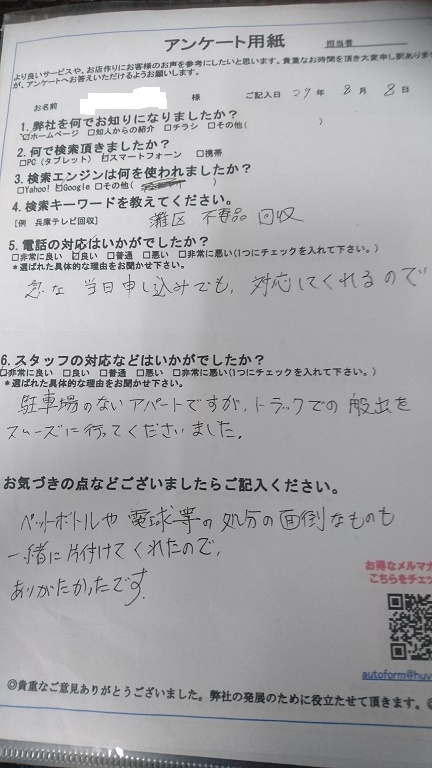 アンケート用紙
担当者
より良いサービスや、お店作りにお客様のお声を参考にしたいと思います。貴重なお時間を頂き大変申し訳ありま
が、アンケートへお答えいただけるようお願いします。
お名前 様 ご記入日 29年 8月 8日
1. 弊社を何でお知りになりましたか?
☑ホームページ □知人からの紹介 □チラシ □その他( )
2. 何で検索頂きましたか?
□PC(タブレット) ☑スマートフォーン □携帯
3. 検索エンジンは何を使われましたか?
□Yahoo! ☑Google □その他( )
4. 検索キーワードを教えてください。
[例 兵庫テレビ回収] 灘区 不要品 回収
5. 電話の対応はいかがでしたか?
□非常に良い ☑良い □普通 □悪い □非常に悪い(1つにチェックを入れて下さい。)
*選ばれた具体的な理由をお聞かせ下さい。
急な当日申し込みでも、対応してくれるので
6. スタッフの対応などはいかがでしたか?
□非常に良い □良い □普通 □悪い □非常に悪い(1つにチェックを入れて下さい。)
*選ばれた具体的な理由をお聞かせ下さい。
駐車場のないアパートですが、トラックでの搬出を
スムーズに行ってくださいました。
お気づきの点などございましたらご記入ください。
ペットボトルや電球等の処分の面倒なものも
一緒に片付けてくれたので、
ありがたかったです。
お得なメルマガ
こちらをチェッ
autoform@huv
◎貴重なご意見ありがとうございました。弊社の発展のために役立たせて頂きます。◎